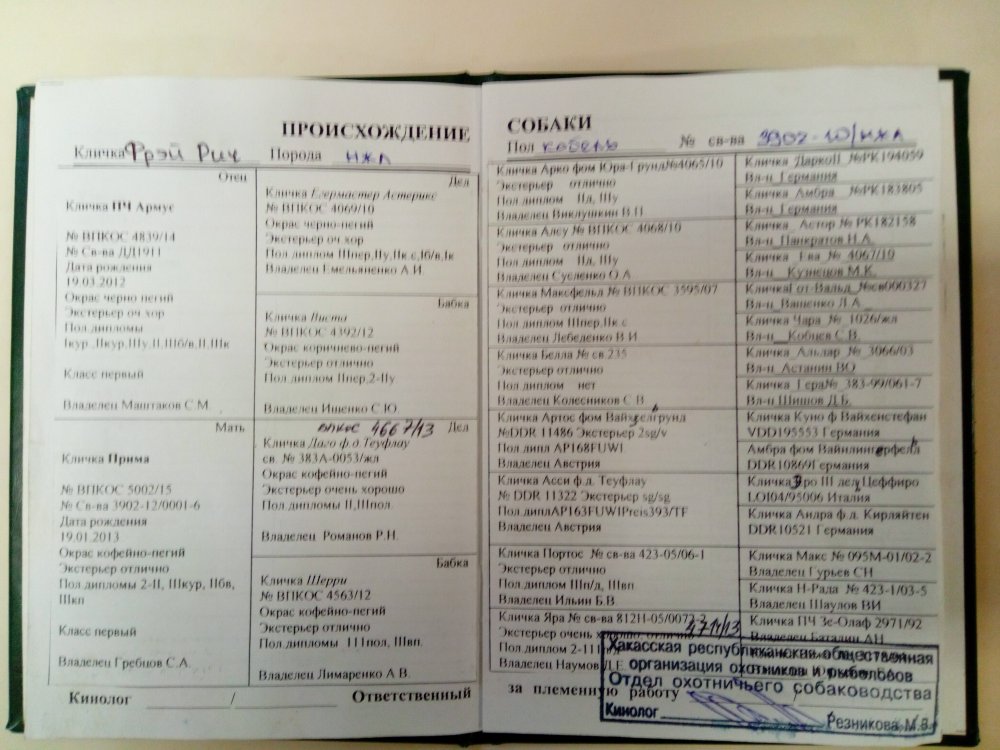 ПРОИСХОЖДЕНИЕ
Кличка Фрэй Рич Порода НЖЛ
Отец
Кличка ПЧ Армус
№ ВПКОС 4839/14
№ Св-ва ДД1911
Дата рождения
19.03.2012
Окрас черно пегий
Экстерьер оч хор
Пол дипломы
Класс первый
Владелец Маштаков С.М.
Дед
Кличка Егермастер Астерикс
№ ВПКОС 4069/10
Окрас черно-пегий
Экстерьер оч хор
Пол диплом Шпер,Пу,Пк с,Iб/в,Iк
Владелец Емельяненко А.И.
Бабка
Кличка Листа
№ ВПКОС 4392/12
Окрас коричнево-пегий
Экстерьер отлично
Пол диплом Ппер,2-Пу
Владелец Ищенко С.Ю.
Мать
Кличка Прима
№ ВПКОС 5002/15
№ Св-ва 3902-12/0001-6
Дата рождения
19.01.2013
Окрас кофейно-пегий
Экстерьер отлично
Пол дипломы 2-II, Шкур, Пбв,
Шкп
Класс первый
Владелец Гребцов С.А.
ВПКОС 4667/13 Дед
Кличка Лаго ф.д.Теуфлау
св. № 383А-0053/жл
Окрас кофейно-пегий
Экстерьер очень хорошо
Пол.дипломы II,IIIпол.
Владелец Романов Р.Н.
Бабка
Кличка Шерри
№ ВПКОС 4563/12
Окрас кофейно-пегий
Экстерьер отлично
Пол дипломы 111пол, Швп.
Владелец Лимаренко А В.
Кинолог / Ответственный
СОБАКИ
Пол кобель № св-ва 3902-10/НЖЛ
Кличка Арко фом Юра-Грунд№4065/10
Экстерьер отлично
Пол диплом IIд, Шу
Владелец Виклушкин В.П.
Кличка Алсу № ВПКОС 4068/10
Экстерьер отлично
Пол диплом IIд, Шу
Владелец Сусленко О.А.
Кличка Максфельд № ВПКОС 3595/07
Экстерьер отлично
Пол диплом Шпер,Пк с
Владелец Лебеденко В.И
Кличка Белла № св.235
Экстерьер отлично
Пол диплом нет
Владелец Колесников С.В.
Кличка Артос фом Вайхзельгрунд
№DDR 11486 Экстерьер 2sg/v
Пол дипл АР168FUWI
Владелец Австрия
Кличка Асси ф.д. Теуфлау
№ DDR 11322 Экстерьер sg/sg
Пол диплАР163FUWIPreis393/TF
Владелец Австрия
Кличка Портос № св-ва 423-05/06-1
Экстерьер отлично
Пол диплом Шп/д, Швп
Владелец Ильин Б.В.
Кличка Яра № св-ва 812Н-05/0072-2
4711/13
Экстерьер очень хорошо
Пол диплом 2-111
Владелец Наумов Д.Е.
Кличка ДаркоП №РК194059
Вл-ц Германия
Кличка Амбра №РК183805
Вл-ц Германия
Кличка Астор № РК182158
Вл-ц Панкратов Н.А.
Кличка Ева № 4067/10
Вл-ц Кузнецов М.К.
КличкаГот-Вальд №св000327
Вл-ц Ващенко Л.А
Кличка Чара № 1026/жл
Вл-ц Кобцев С.В.
Кличка Альдар № 3066/03
Вл-ц Астанин ВО
Кличка Гера№ 383-99/061-7
Вл-ц Шишов Д.Б.
Кличка Куно ф Вайхенстефан
VDD195553 Германия
Амбра фом Вайнлингерфельд
DDR10869Германия
Кличка Эро III дель Цеффиро
LOI04/95006 Италия
Кличка Андра ф.д. Кирляйтен
DDR10521 Германия
Кличка Макс № 095М-01/02-2
Владелец Гурьев СН
Кличка Н-Рада № 423-1/03-5
Владелец Шаулов ВИ
Кличка ПЧ Зе-Олаф 2971/92
Владелец Баталин АН
за племенную работу
Хакасская республиканская общественная
организация охотников и рыболовов
Отдел охотничьего собаководства
Кинолог Резникова М.В.